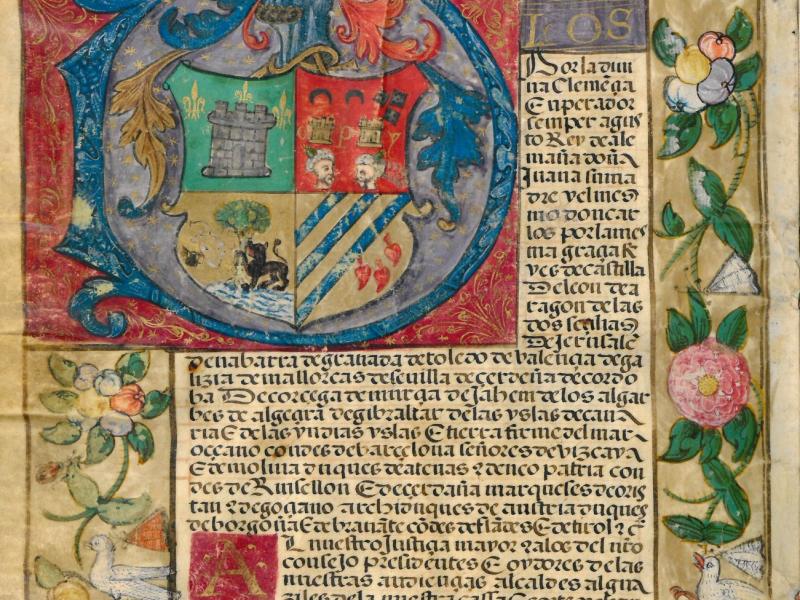 LOS
Por la divi
na Clemēçia
Enperador
senper agus
to Rey de ale
maña doña
Juana su ma
dre y el mes
mo don car
los por la mes
ma graçia R
yes de castilla
De leon de a
ragon de las
dos seçilias
De jerusalē
de nabarra de granada de toledo de valençia de ga
lizia de mallorcas de sevilla de çerdeña de cordo
ba De corçega de murçia de Jahem de los algar
bes de algezira de gibraltar de las yslas de cana
ria E de las yndias yslas E tierra firme del mar
oççano condes de barçelona señores de vizcaya
E de molina duques de atenas z de neopatria con
des de Ruisellon E de çerdaña marqueses de oris
tan z de goçiano archiduques de austria duques
de borgoña E de bravante cōdes de flādes E de tirol z cͣ
A L nuestro Justiçia mayor z a los del nr̄o
consejo presidentes E oydores de las
nuestras audiençias alcaldes algua
ziles de la nuestra cassa E corte